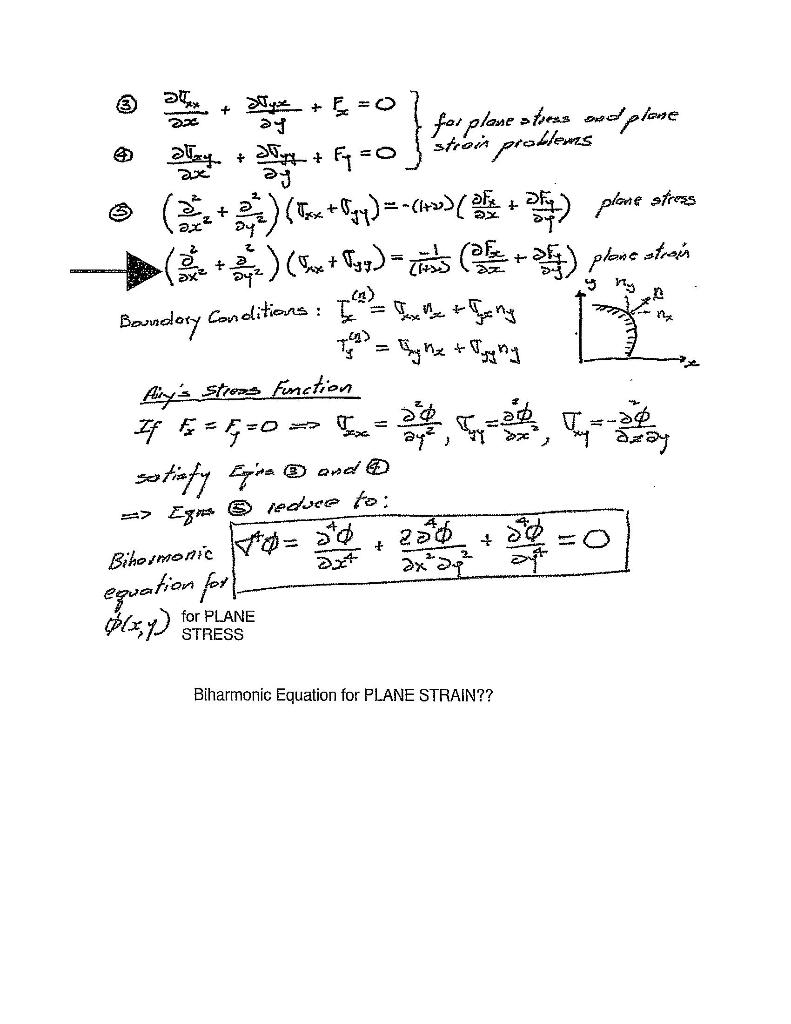 ③ ∂σxx/∂x + ∂σyx/∂y + Fx = 0
④ ∂σxy/∂x + ∂σyy/∂y + Fy = 0
} for plane stress and plane
strain problems
⑤ (∂²/∂x² + ∂²/∂y²)(σxx + σyy) = -(1+ν)(∂Fx/∂x + ∂Fy/∂y) plane stress
(∂²/∂x² + ∂²/∂y²)(σxx + σyy) = -1/(1-ν) (∂Fx/∂x + ∂Fy/∂y) plane strain
Boundary Conditions : Tx⁽ⁿ⁾ = σxx nx + σyx ny
Ty⁽ⁿ⁾ = σxy nx + σyy ny
y ny n
nx
x
Airy's Stress Function
If Fx = Fy = 0 => σxx = ∂²ϕ/∂y², σyy = ∂²ϕ/∂x², σxy = -∂²ϕ/∂x∂y
satisfy Eqns ③ and ④
=> Eqns ⑤ reduce to:
Biharmonic
equation for
ϕ(x,y)
∇⁴ϕ = ∂⁴ϕ/∂x⁴ + 2∂⁴ϕ/∂x²∂y² + ∂⁴ϕ/∂y⁴ = 0
for PLANE
STRESS
Biharmonic Equation for PLANE STRAIN??